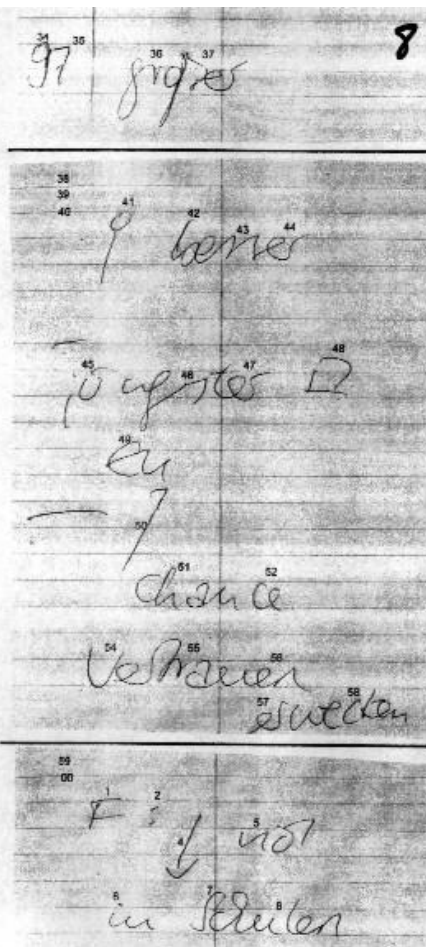 34 35 36 37
97 großes
8
38
39
40 41 42 43 44
besser
45 46 47 48
jüngster
49
EU
50
51 52
chance
54 55 56
Vertrauen
57 58
erwecken
59
00
1 2
F :
4 5
↓ not
6 7 8
in Schulen